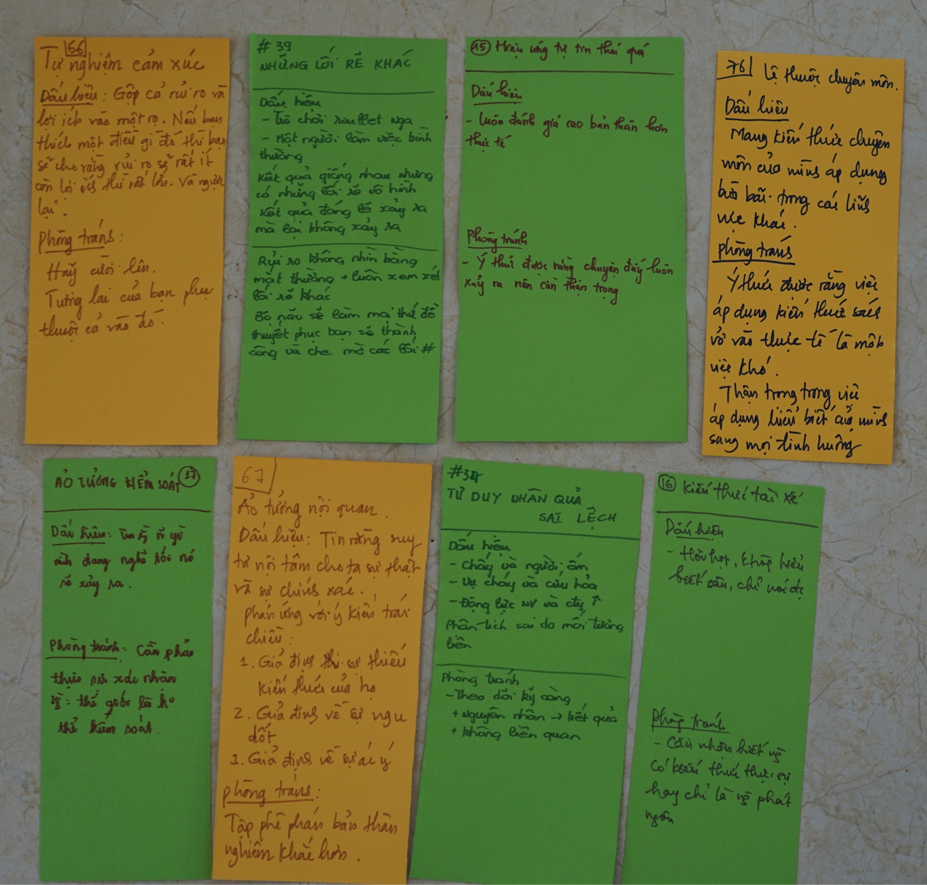 66
Tự nghiệm cảm xúc
Dấu hiệu: Gộp cả rủi ro và
lợi ích vào một rọ. Nếu bạn
thích một điều gì đó thì bạn
sẽ cho rằng rủi ro sẽ rất ít
còn lợi ích thì rất lớn. Và ngược
lại.
Phòng tránh:
Hãy cười lên.
Tương lai của bạn phụ
thuộc cả vào đó.
#39
NHỮNG LỐI RẼ KHÁC
Dấu hiệu
- Trò chơi roullet nga
- Một người làm việc bình
thường
Kết quả giống nhau nhưng
có những lối rẽ vô hình
Kết quả đáng lẽ xảy ra
mà lại không xảy ra
Rủi ro không nhìn bằng
mắt thường → luôn xem xét
lối rẽ khác
Bộ não sẽ làm mọi thứ để
thuyết phục bạn sẽ thành
công và che mờ các lối #
15 Hiệu ứng tự tin thái quá
Dấu hiệu
- Luôn đánh giá cao bản thân hơn
thực tế
Phòng tránh
- Ý thức được rằng chuyện đấy luôn
xảy ra nên cẩn thận trọng
76 Lệ thuộc chuyên môn.
Dấu hiệu
Mang kiến thức chuyên
môn của mình áp dụng
bừa bãi trong các lĩnh
vực khác.
Phòng tránh
Ý thức được rằng việc
áp dụng kiến thức sách
vở vào thực tế là một
việc khó.
Thận trọng trong việc
áp dụng hiểu biết của mình
sang mọi tình huống
ẢO TƯỞNG KIỂM SOÁT 17
Dấu hiệu:
mình đang nghĩ tới nó
sẽ xảy ra.
Phòng tránh: Cần phải
thức
thế giới là ko
thể kiểm soát.
67
Ảo tưởng nội quan.
Dấu hiệu: Tin rằng suy
tư nội tâm cho ta sự thật
và sự chính xác.
Phản ứng với ý kiến trái
chiều:
1. Giả định thì sự thiếu
kiến thức của họ
2. Giả định về sự ngu
dốt
3. Giả định về sự ác ý
Phòng tránh:
Tập phê phán bản thân
nghiêm khắc hơn.
#37
TƯ DUY NHÂN QUẢ
SAI LỆCH
Dấu hiệu
- Chấy và người ốm
- Vụ cháy và cứu hỏa
- Động lực NV và cty ↑
Phân tích sai do mối tương
liên
Phòng tránh
- Theo dõi kỹ càng
+ nguyên nhân → kết quả
+ không liên quan
16 Kiến thức tài xế
Dấu hiệu
- Hời hợt, không hiểu
biết sâu, chỉ
Phòng tránh
- Cần nhận biết
có kiến thức thực sự
hay chỉ là phát
ngôn